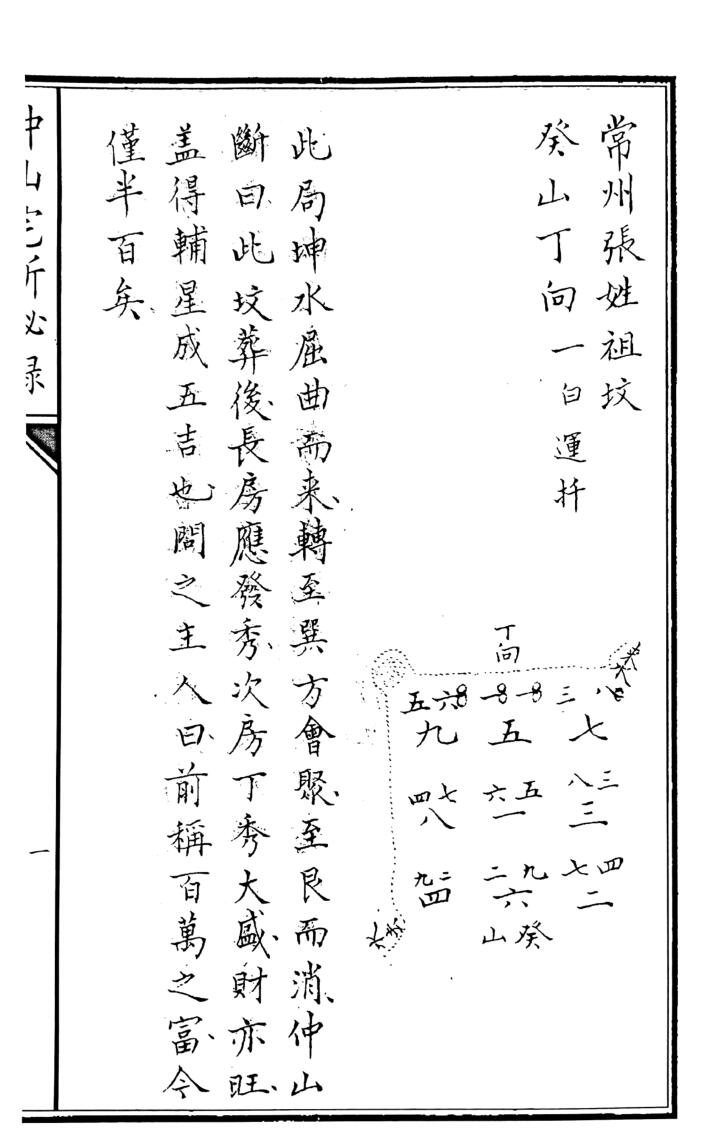 常州張姓祖坟
癸山丁向一白運扦
丁向
五六 一一 三八
九 五 七
四七 六五 八三
八 一 三
九二 二九 七四
四 六 二
山癸
此局坤水屈曲而来、轉至巽方會聚、至艮而消、仲山
斷曰、此坟葬後、長房應發秀、次房丁秀大盛、財亦旺、
盖得輔星成五吉也、問之主人曰、前稱百萬之富、今
僅半百矣、
一